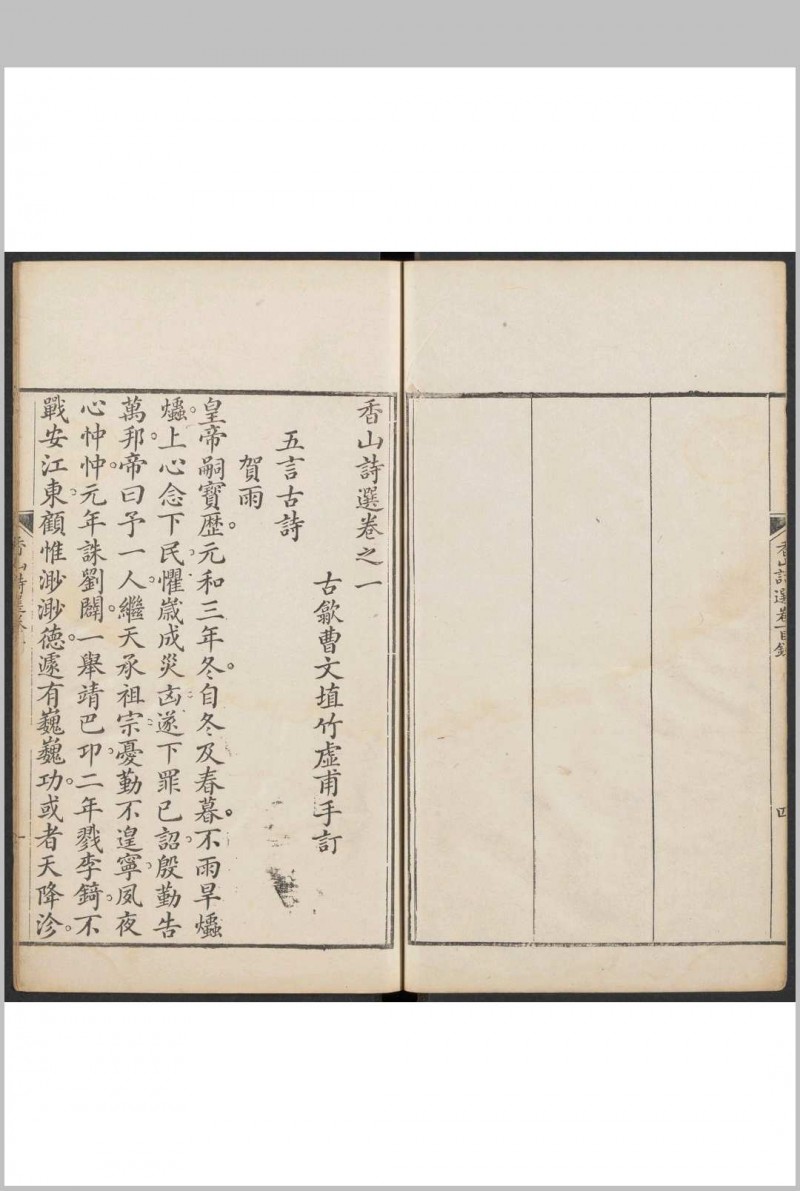 香山詩選卷一目錄
四
香山詩選卷之一
古歙曹文埴竹虛甫手訂
五言古詩
賀雨
皇帝嗣寶歷。元和三年冬。自冬及春暮。不雨旱爞
爞。上心念下民。懼歲成災凶。遂下罪己詔。殷勤告
萬邦。帝曰予一人。繼天承祖宗。憂勤不遑寧。夙夜
心忡忡。元年誅劉闢。一舉靖巴卭。二年戮李錡。不
戰安江東。顧惟渺渺德。遽有巍巍功。或者天降沴。
香山詩選卷一
一